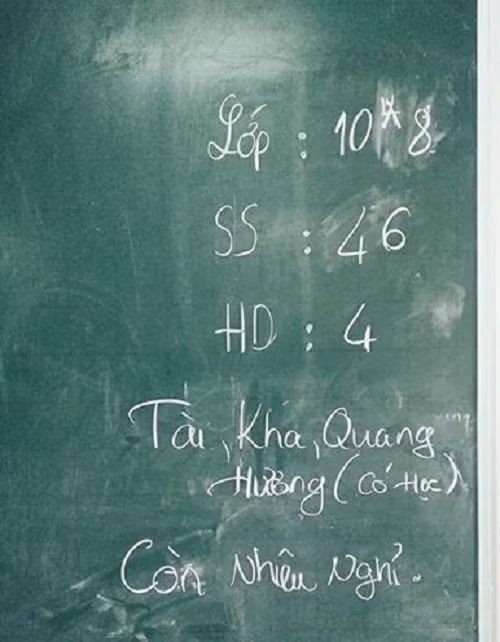 Lớp : 10A8
SS : 46
HD : 4
Tài, Kha, Quang
Hường (Có Học)
Còn Nhiêu Nghỉ.